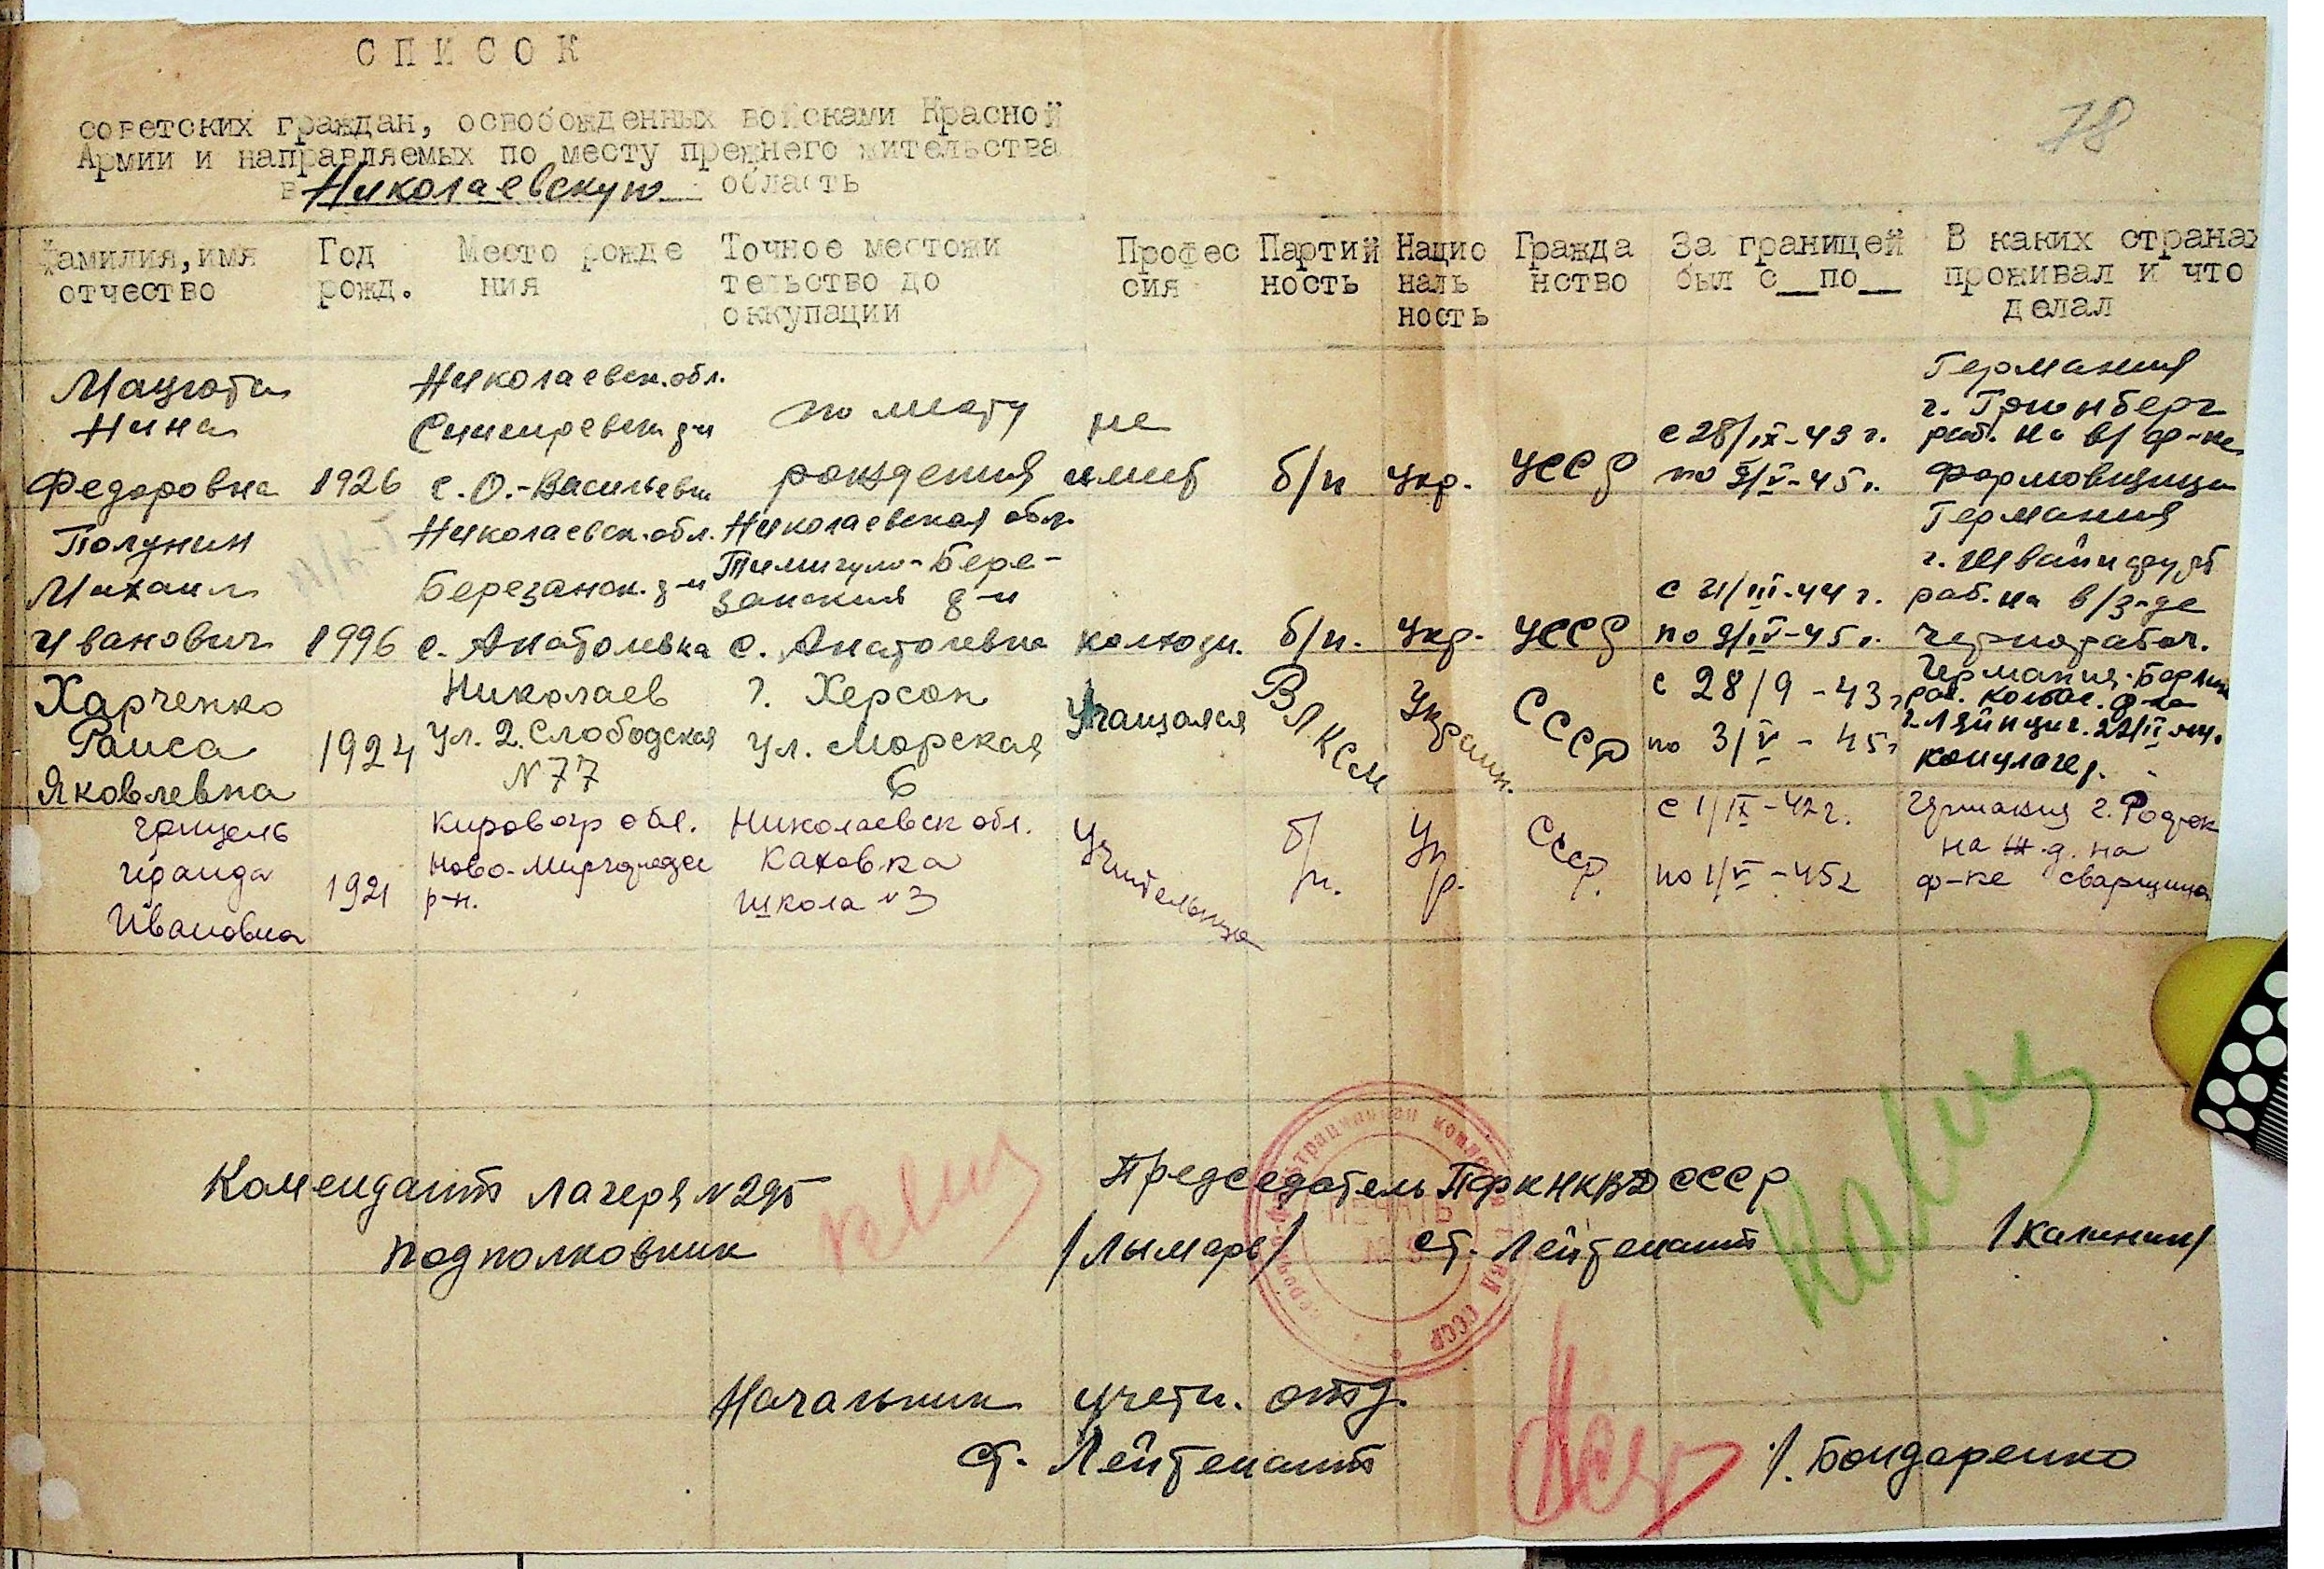 СПИСОК
78
советских граждан, освобожденных войсками Красной
Армии и направляемых по месту прежнего жительства
в Николаевскую область
Фамилия, имя отчество
Год рожд.
Место рожде ния
Точное местожи тельство до оккупации
Профес сия
Партий ность
Нацио наль ность
Гражда нство
За границей был с__по__
В каких странах проживал и что делал
Мацюта
Нина
Федоровна
1926
Николаевск. обл.
р-н
с. О.-Васильевка
по месту
рождения
не
имеет
б/п
Укр.
УССР
с 28/IX-43 г.
по 9/V-45 г.
Германия
г. Грюнберг
раб. на в/ ф-ке
формовщица
Полунин
Михаил
Иванович
1996
Николаевск. обл.
Березанск. р-н
с. Анатольевка
Николаевская обл.
Тилигуло-Бере-
занский р-н
с. Анатольевка
колхозн.
б/п.
Укр.
УССР
с 21/III-44 г.
по 9/IV-45 г.
Германия
г.
раб. на в/з-де
чернорабоч.
Харченко
Раиса
Яковлевна
1924
Николаев
ул. 2. Слободская
N 77
г. Херсон
ул. Морская
6
Учащаяся
ВЛКСМ
Украин.
СССР
с 28/9-43 г
по 3/V-45 г
Германия-Берлин
раб. колбас. ф-ка
г. Лейпциг. 22/II 44.
концлагер.
Ираида
Ивановна
1921
Кировогр обл.
Ново-Миргородс
р-н.
Николаевск обл.
Каховка
школа N 3
Учительница
б/п.
Укр.
СССР.
с 1/IX-42 г.
по 1/V-45 г
Германия г.
на ж.д. на
ф-ке сварщица
Комендант Лагеря N 295
подполковник
/Лымарь/
Председатель ПФК НКВД СССР
ст. Лейтенант
/Калинин/
ПЕЧАТЬ
НКВД СССР
Начальник учетн. отд.
ст. Лейтенант
/. Бондаренко